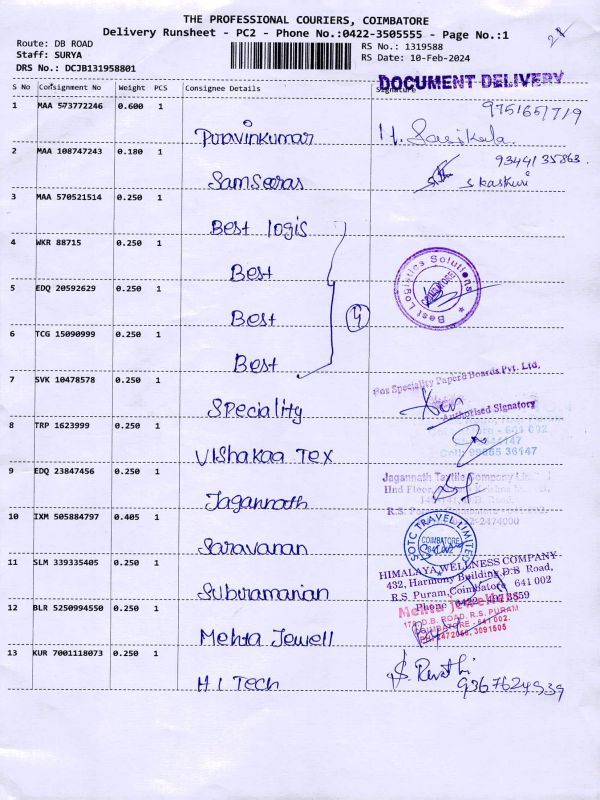 THE PROFESSIONAL COURIERS, COIMBATORE
Delivery Runsheet - PC2 - Phone No.:0422-3505555 - Page No.:1
Route: DB ROAD
Staff: SURYA
DRS No.: DCJB131958801
RS No.: 1319588
RS Date: 10-Feb-2024
DOCUMENT DELIVERY
S No Consignment No Weight PCS Consignee Details Signature
1 MAA 573772246 0.600 1
Puravinkumar
9751657719
2 MAA 108747243 0.180 1
Samseeras
9344135863
3 MAA 570521514 0.250 1
Best logis
4 WKR 88715 0.250 1
Best
Best Logistics Solutions
COIMBATORE
5 EDQ 20592629 0.250 1
Best
4
6 TCG 15090999 0.250 1
Best
7 SVK 10478578 0.250 1
Speciality
For Speciality Paper & Boards Pvt. Ltd.
Authorised Signatory
8 TRP 1623999 0.250 1
Vishakaa Tex
641 002
36147
9 EDQ 23847456 0.250 1
Jagannath
Jagannath Textile Company
IInd Floor,
2474000
10 IXM 505884797 0.405 1
Saravanan
SOTC TRAVEL LIMITED
COIMBATORE
641 002
11 SLM 339335405 0.250 1
Subramanian
HIMALAYA WELLNESS COMPANY
432, Harmony Building, D.B Road,
R.S. Puram, Coimbatore 641 002
Phone 0422
12 BLR 5250994550 0.250 1
Mehta Jewell
Mehta Jewellers
D.B. ROAD, R.S. PURAM
COIMBATORE - 641 002.
2472066, 3091505
13 KUR 7001118073 0.250 1
H I Tech
S. Revathi
9367624939